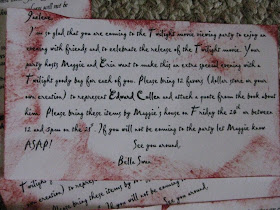 will not be
Guelere,
I'm so glad that you are coming to the Twilight movie viewing party to enjoy an
evening with friends and to celebrate the release of the Twilight movie. Your
party hosts Maggie and Erin want to make this an extra special evening with a
Twilight goody bag for each of you. Please bring 12 favors (dollar store or your
own creation) to represent Edward Cullen and attach a quote from the book about
him. Please bring these items by Maggie's house on Friday the 20th or between
12 and 5pm on the 21st. If you will not be coming to the party let Maggie know
ASAP!
See you around,
Bella Swan
Twilight
own creation) to represent
him. Please bring these items by
If you will not be coming to
See you around,